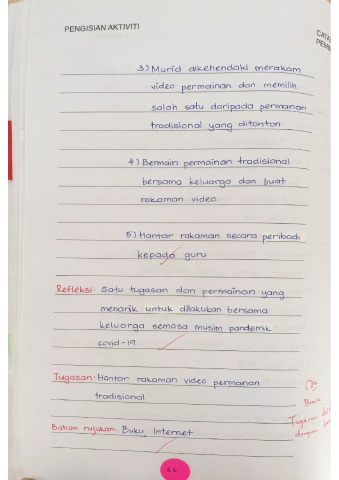 PENGISIAN AKTIVITI
CATA
3) Murid dikehendaki merakam
video permainan dan memilih
salah satu daripada permainan
tradisional yang ditonton
4) Bermain permainan tradisional
bersama keluarga dan buat
rakaman video.
5) Hantar rakaman secara peribadi
kepada guru
Refleksi: Satu tugasan dan permainan yang
menarik untuk dilakukan bersama
keluarga semasa musim pandemik
covid-19.
Tugasan: Hantar rakaman video permainan
tradisional
Bahan rujukan: Buku, Internet
Tugasan
dengan
66